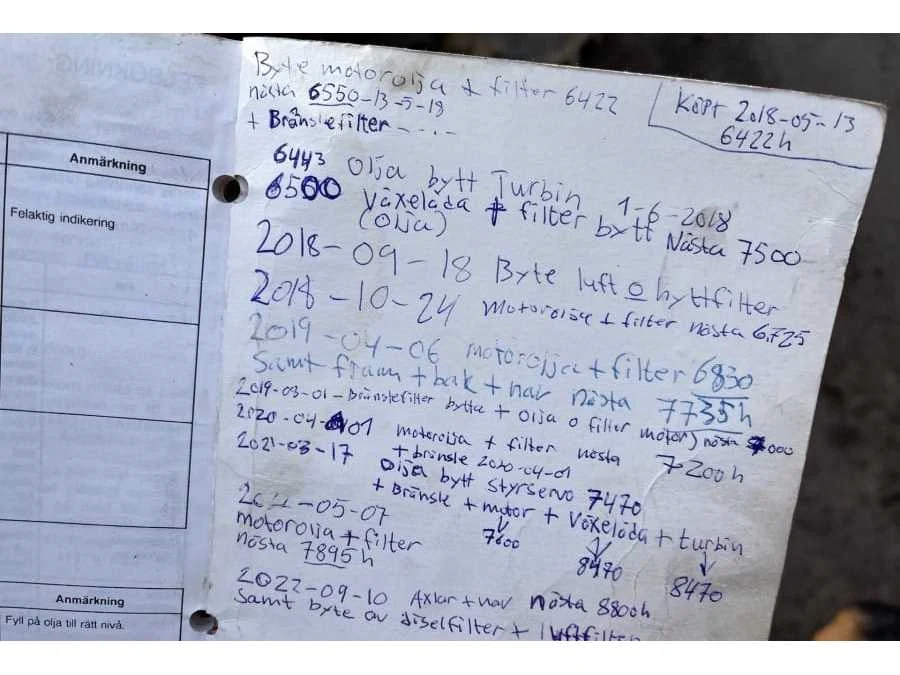 Anmärkning
Felaktig indikering
Anmärkning
Fyll på olja till rätt nivå.
Byte motorolja + filter 6422
nästa 6550-13-5-18
+ Bränslefilter - . . .
Köpt 2018-05-13
6422h
6443 olja bytt Turbin
6500 växelåda + filter bytt 1-6-2018
(olja) Nästa 7500
2018-09-18 Byte luft o hyttfilter
2018-10-24 motorolja + filter nästa 6.725
2019-04-06 motorolja + filter 6830
samt fram + bak + nav nästa 7735h
2019-03-01 - Bränslefilter bytta + olja o filter motor) nästa 7000
2020-04-01 motorolja + filter nästa 7200h
+ bränsle 2020-04-01
2021-03-17 olja bytt styrservo 7470
+ Bränsle + motor + växelåda + turbin
7600 8470 8470
-05-07
motorolja + filter
nästa 7895h
2022-09-10 Axlar + nav nästa 8800h
samt byte av diselfilter + luftfilter